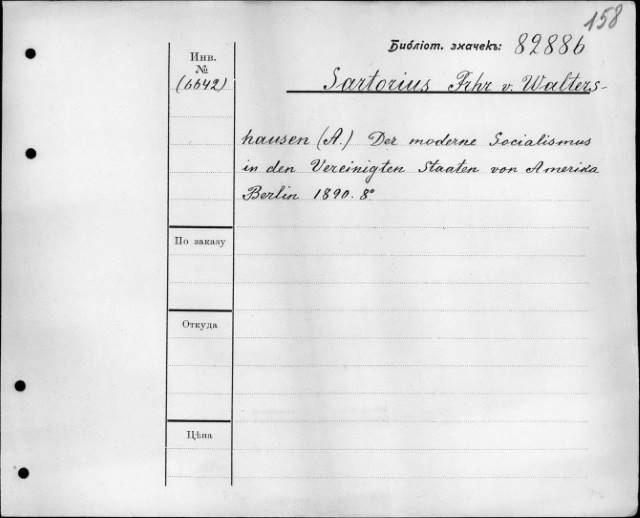 158
Библіот. значекъ: 82886
Инв.
№
(6642)
Sartorius Frhr v. Walters-
hausen (A.) Der moderne Socialismus
in den Vereinigten Staaten von Amerika
Berlin 1890. 8°
По заказу
Откуда
Цѣна